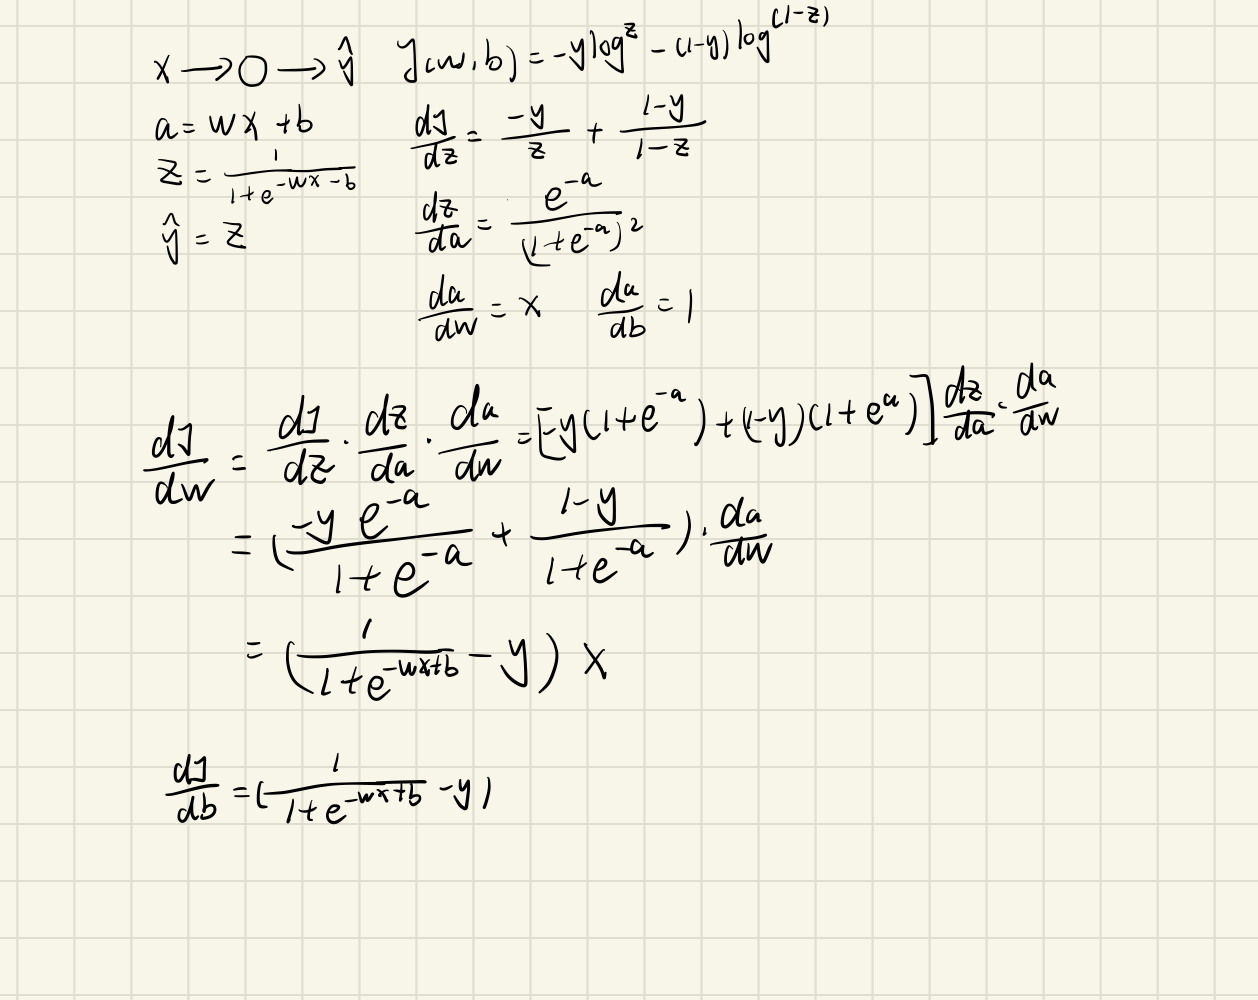 x → ○ → ŷ    J(w,b) = -ylog^z - (1-y)log^(1-z)
a = wx + b    dJ/dz = -y/z + (1-y)/(1-z)
z = 1/(1+e^(-wx-b))    dz/da = e^(-a)/(1+e^(-a))^2
ŷ = z
da/dw = x    da/db = 1
dJ/dw = dJ/dz · dz/da · da/dw = [-y(1+e^(-a)) + (1-y)(1+e^a)] dz/da · da/dw
= (-y e^(-a)/(1+e^(-a)) + (1-y)/(1+e^(-a))) · da/dw
= (1/(1+e^(-wx+b)) - y) x
dJ/db = (1/(1+e^(-wx+b)) - y)